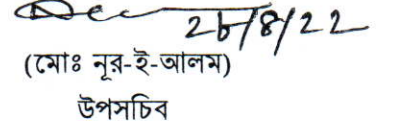 28/8/22
(মোঃ নূর-ই-আলম)
উপসচিব